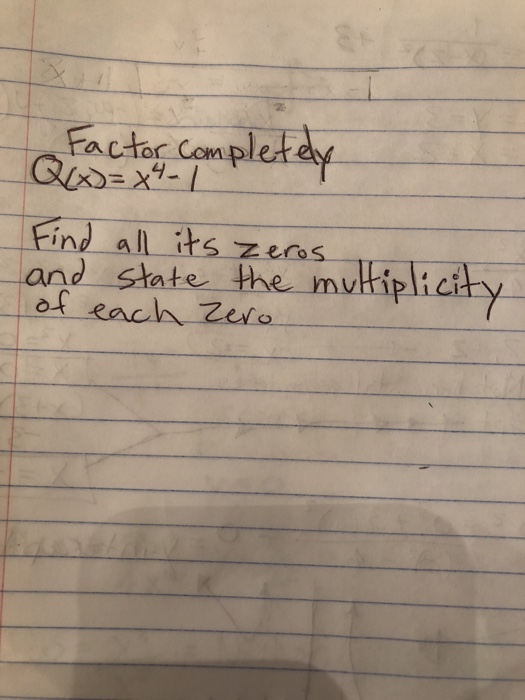 Factor Completely
Q(x) = x⁴ - 1
Find all its zeros
and state the multiplicity
of each zero